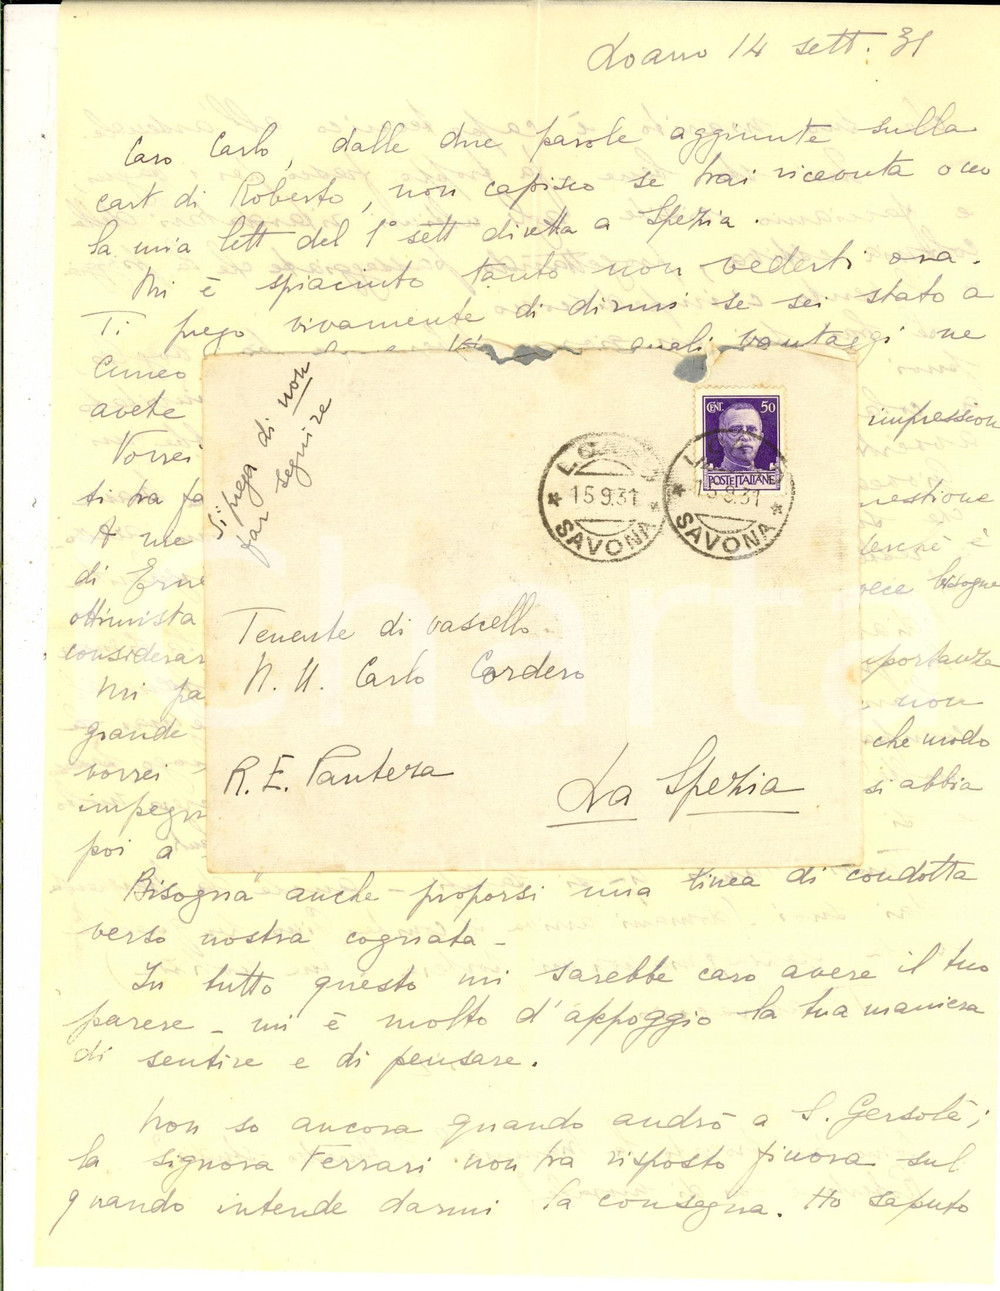 Loano 14 sett. 31
Caro Carlo, dalle due parole aggiunte sulla
cart di Roberto, non capisco se hai ricevuta o no
la mia lett del 1° sett diretta a Spezia.
Mi è spiaciuto tanto non vederti ora.
Ti prego vivamente di dirmi se sei stato a
Cuneo quali vantaggi ne
avete impression
Vorrei
ti tra fa uestione
A me
di Erne vece bisogne
ottimista
considerar portanza
Mi pa non
grande che modo
vorrei si abbia
impegn
poi a
Si prega di non
far seguire
CENT. 50
POSTE ITALIANE
LOANO
15.9.31
SAVONA
15.9.31
SAVONA
Tenente di vascello.
N. H. Carlo Cordero
R. E. Pantera
La Spezia
Bisogna anche proporsi una linea di condotta
verso nostra cognata -
In tutto questo mi sarebbe caro avere il tuo
parere - mi è molto d'appoggio la tua maniera
di sentire e di pensare.
Non so ancora quando andrò a S. Gersolè;
la signora Ferrari non ha risposto finora sul
quando intende darmi la consegna. Ho saputo
charta